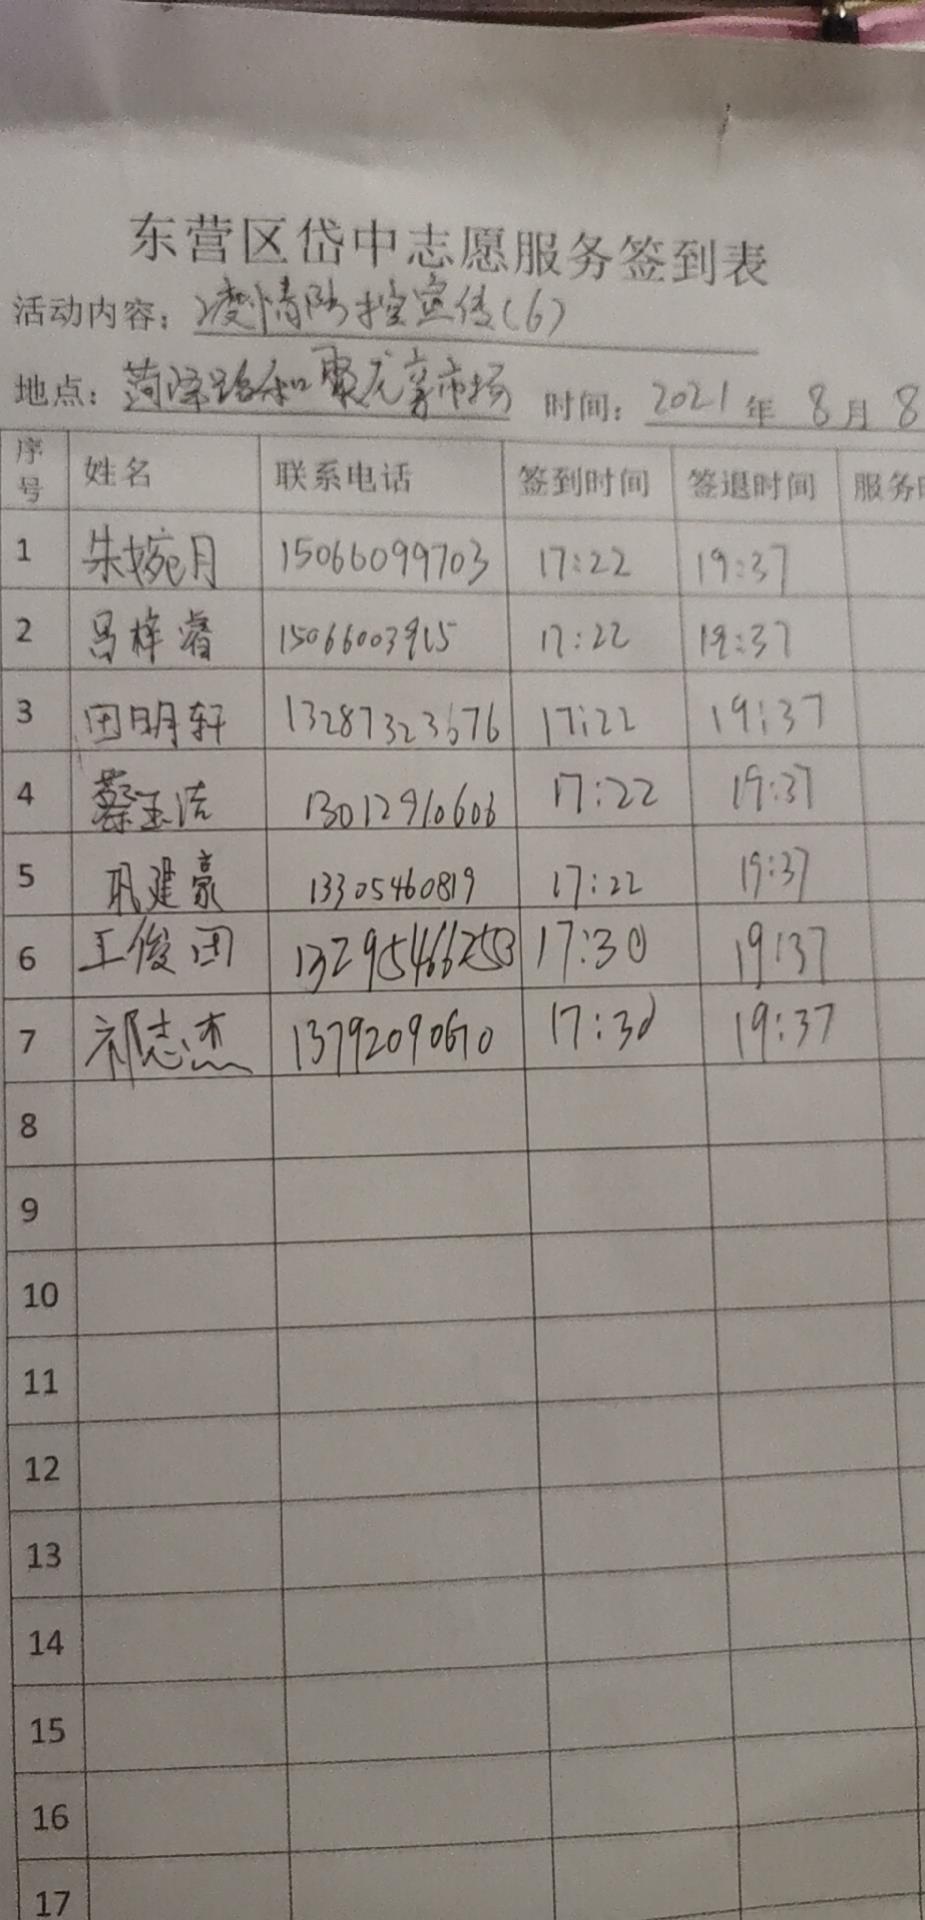 东营区岱中志愿服务签到表
活动内容：疫情防控宣传(6)
地点：菏泽路和聚龙亭市场 时间：2021年8月8
序号 姓名 联系电话 签到时间 签退时间 服务
1 朱婉月 15066099703 17:22 19:37
2 吕梓睿 15066003915 17:22 19:37
3 田明轩 13287323676 17:22 19:37
4 蔡玉洁 13012910606 17:22 19:37
5 巩建豪 13305460819 17:22 19:37
6 王俊团 17:30 19:37
7 祁志杰 13792090670 17:30 19:37
8
9
10
11
12
13
14
15
16
17